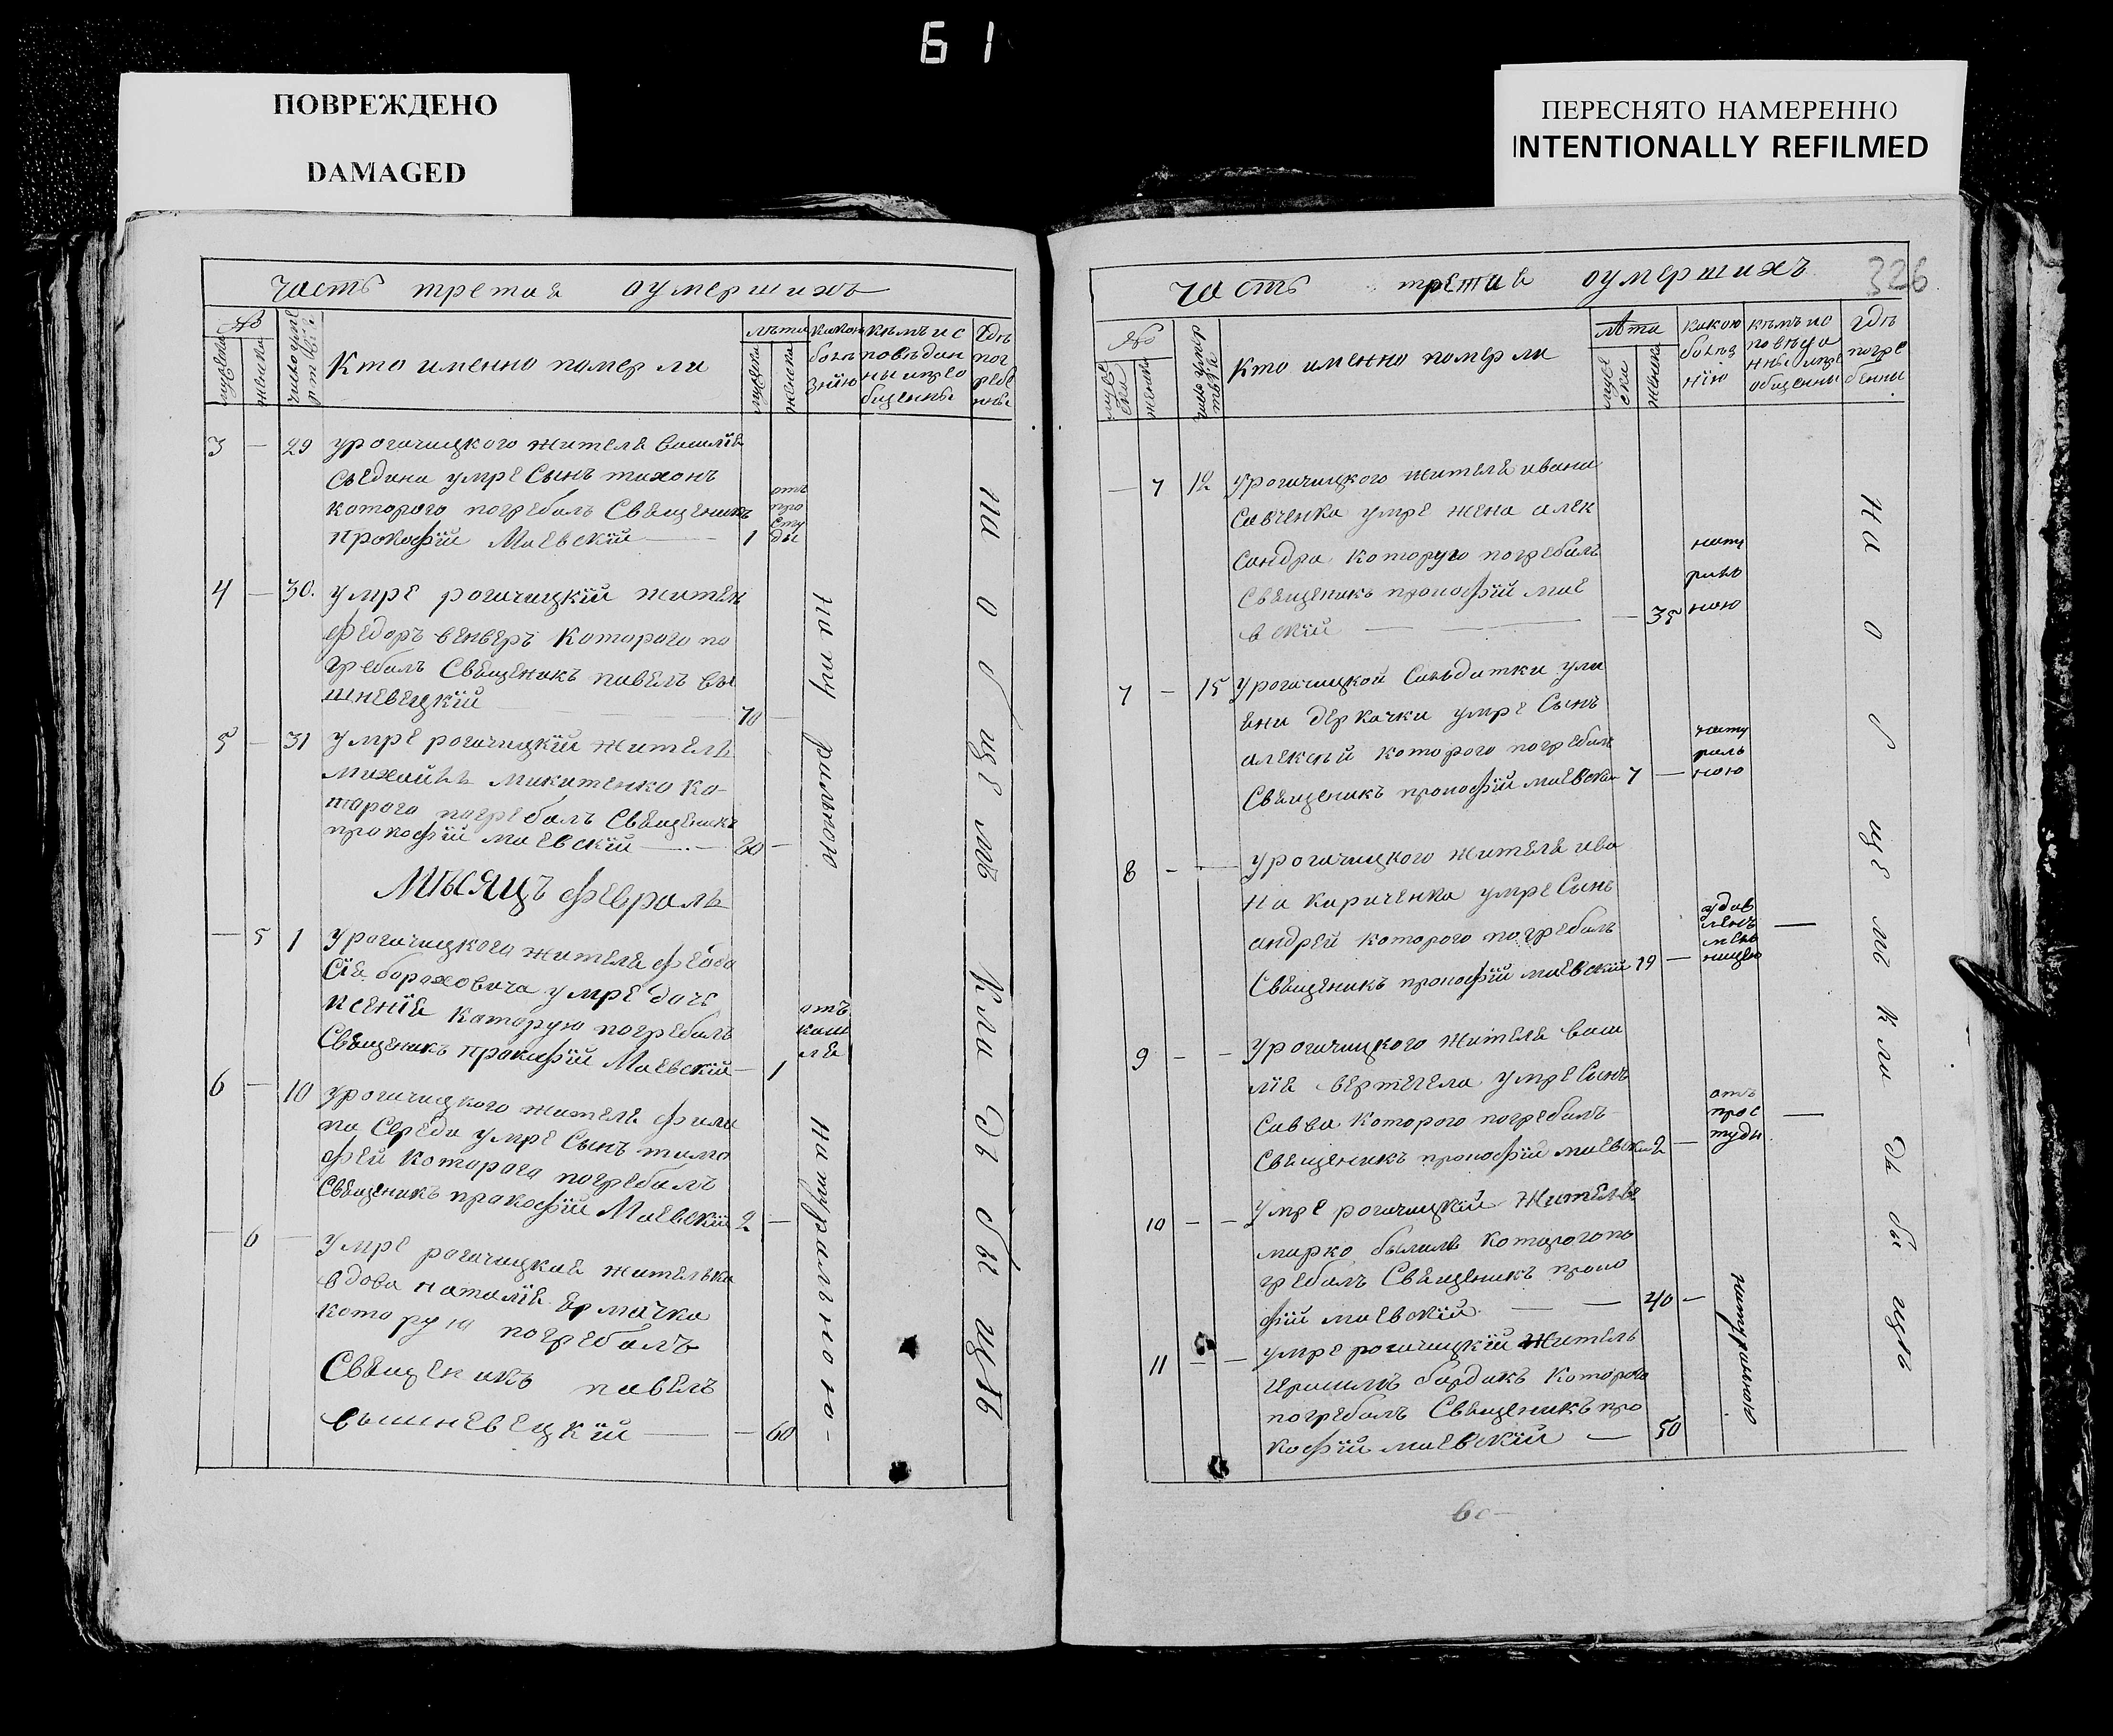 61
ПОВРЕЖДЕНО
DAMAGED
ПЕРЕСНЯТО НАМЕРЕННО
INTENTIONALLY REFILMED
часть третая оумершихъ
№
мужеска
женска
Кто именно померли
лѣта
мужеска
женска
какою болѣзнїю
кѣмъ исповѣданы и прїобщенны
гдѣ погребенны
3 — 29 урогачицкого жителя василїя
Сѣедина умре Сынъ тихонъ
которого погребалъ Священикъ
прокофїй Маевскїй — 1
отъ
про
сту
ды
4 — 30. умре рогачицкїй житель
федоръ венверъ которого по
гребалъ Священикъ павелъ вы
шневецкїй 70 —
5 — 31 умре рогачицкїй житель
михайлъ микитенко ко
торого погребалъ Священикъ
прокофїй маевскїй — 30 —
натуральною
Мѣсяцъ февраль
— 5 1 урогачицкого жителя феодо
сїя бораховича умре дочь
ксенїя которую погребалъ
Священикъ прокофїй Маевскїй — 1
отъ
каш
ля
6 — 10 урогачицкого жителя фили
па Середы умре Сынъ тимо
фей которого погребалъ
Священикъ прокофїй Маевскїй 2 —
— 6 — умре рогачицкая жителька
вдова наталїя ярмачка
которую погребалъ
Священикъ павелъ
вышневецкїй — — 60
натуральною —
на обще мъ кладбищѣ
326
часть третая оумершихъ
№
мужеска
женска
Кто именно померли
лѣта
мужеска
женска
какою болѣзнїю
гдѣ погребенны
— 7 12 урогачицкого жителя ивана
Савченка умре жена алек
сандра которую погребалъ
Священикъ прокофїй мае
вскїй — — 35
нату
раль
ною
7 — 15 урогачицкой Сальдатки ули
яни деркачки умре Сынъ
алексѣй которого погребалъ
Священикъ прокофїй маевски 7 —
нату
раль
ною
8 — — урогачицкого жителя ива
на кириченка умре Сынъ
андрей которого погребалъ
Священикъ прокофїй маевскїй 19 —
удав
ленъ
мель
ницею —
9 — — урогачицкого жителя васи
лїя вертегела умре Сынъ
Савва которого погребалъ
Священикъ прокофїй маевски 2 —
отъ
прос
туды —
10 — — умре рогачицкїй житель
марко былимъ которого по
гребалъ Священикъ проко
фїй маевскїй — — 40 —
11 — — умре рогачицкїй житель
бардакъ которого
погребалъ Священикъ про
кофїй маевскїй — 50
натуральною
на обще мъ кладбищѣ